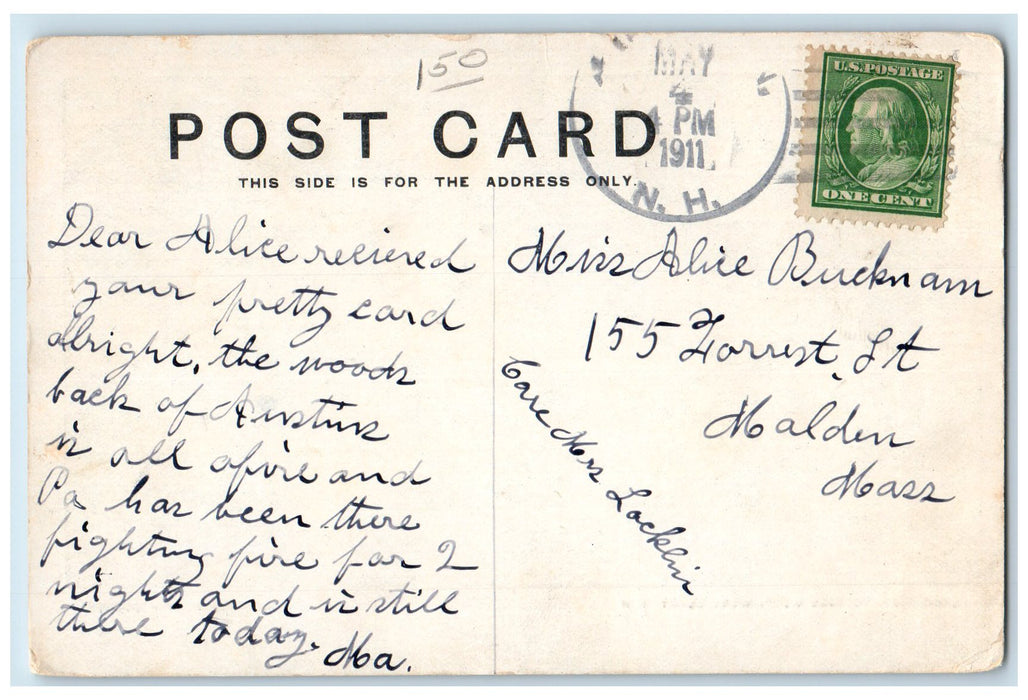 150
MAY
4
4 PM
1911
N. H.
U.S. POSTAGE
ONE CENT
POST CARD
THIS SIDE IS FOR THE ADDRESS ONLY.
Dear Alice recieved
your pretty card
alright, the woods
back of Austins
is all afire and
Pa has been there
fighting fire for 2
nights and is still
there today.
Ma.
Miss Alice Bucknam
155 Forrest, St
Malden
Mass
Care Mrs Locklin